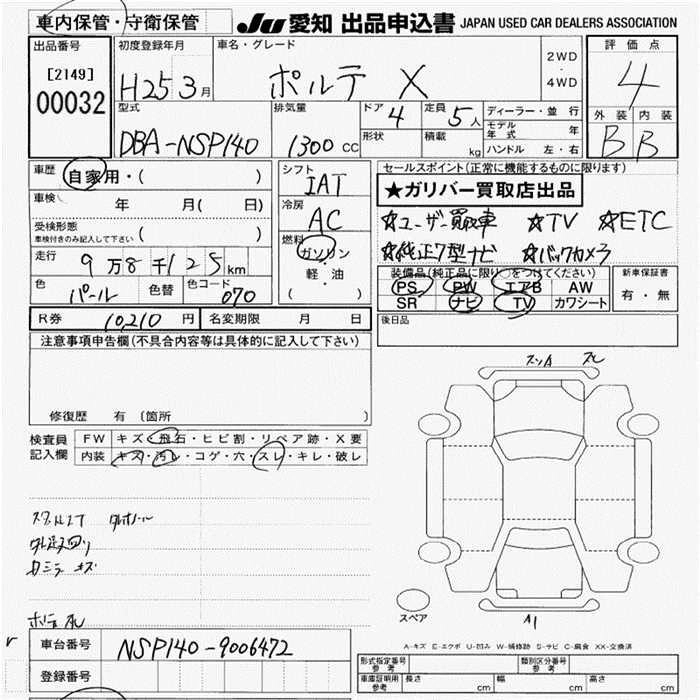 車内保管・守衛保管
JU 愛知 出品申込書 JAPAN USED CAR DEALERS ASSOCIATION
出品番号
[2149]
00032
初度登録年月
H25 3月
車名・グレード
ポルテ X
2WD
・
4WD
評価点
4
外装 内装
B B
型式
DBA-NSP140
排気量
1300 cc
ドア
4
定員
5人
形状
積載
kg
ディーラー・並行
モデル年式 年
ハンドル 左・右
車歴
自家用・( )
車検 年 月( 日)
受検形態
車検付きのみ記入して下さい ( )
走行
9万8千125km
色
パール
色替
色コード
070
シフト
IAT
冷房
AC
燃料
ガソリン
・
軽・油
( )
セールスポイント(正常に機能するものに限ります)
★ガリバー買取店出品
☆ユーザー買取車 ☆TV ☆ETC
☆純正7型ナビ ☆バックカメラ
装備品(純正品に限り○をつけてください)
PS PW エアB AW
SR ナビ TV カワシート
新車保証書
有・無
R券 10,210 円
名変期限 月 日
後日品
注意事項申告欄(不具合内容等は具体的に記入して下さい)
修復歴 有 (箇所
検査員記入欄
FW キズ・飛石・ヒビ割・リペア跡・X要
内装 キズ・汚レ・コゲ・穴・スレ・キレ・破レ
スレ
A1
スペア
A-キズ E-エクボ U-凹み W-補修跡 S-サビ C-腐食 XX-交換済
車台番号 NSP140-9006472
登録番号
形式指定番号 参考
類別区分番号 参考
車庫証明用 参考
長さ cm
幅 cm
高さ cm